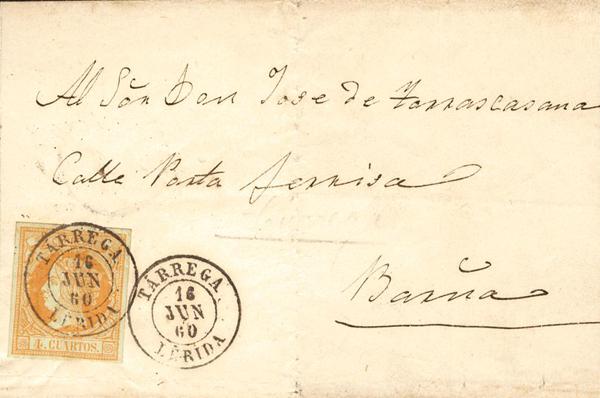 Al Sōn Don Jose de Torrascasana
Calle Porta ferrisa
Barña
TÁRREGA.
16
JUN
60
LÉRIDA
4. CUARTOS.
TÁRREGA.
16
JUN
60
LÉRIDA